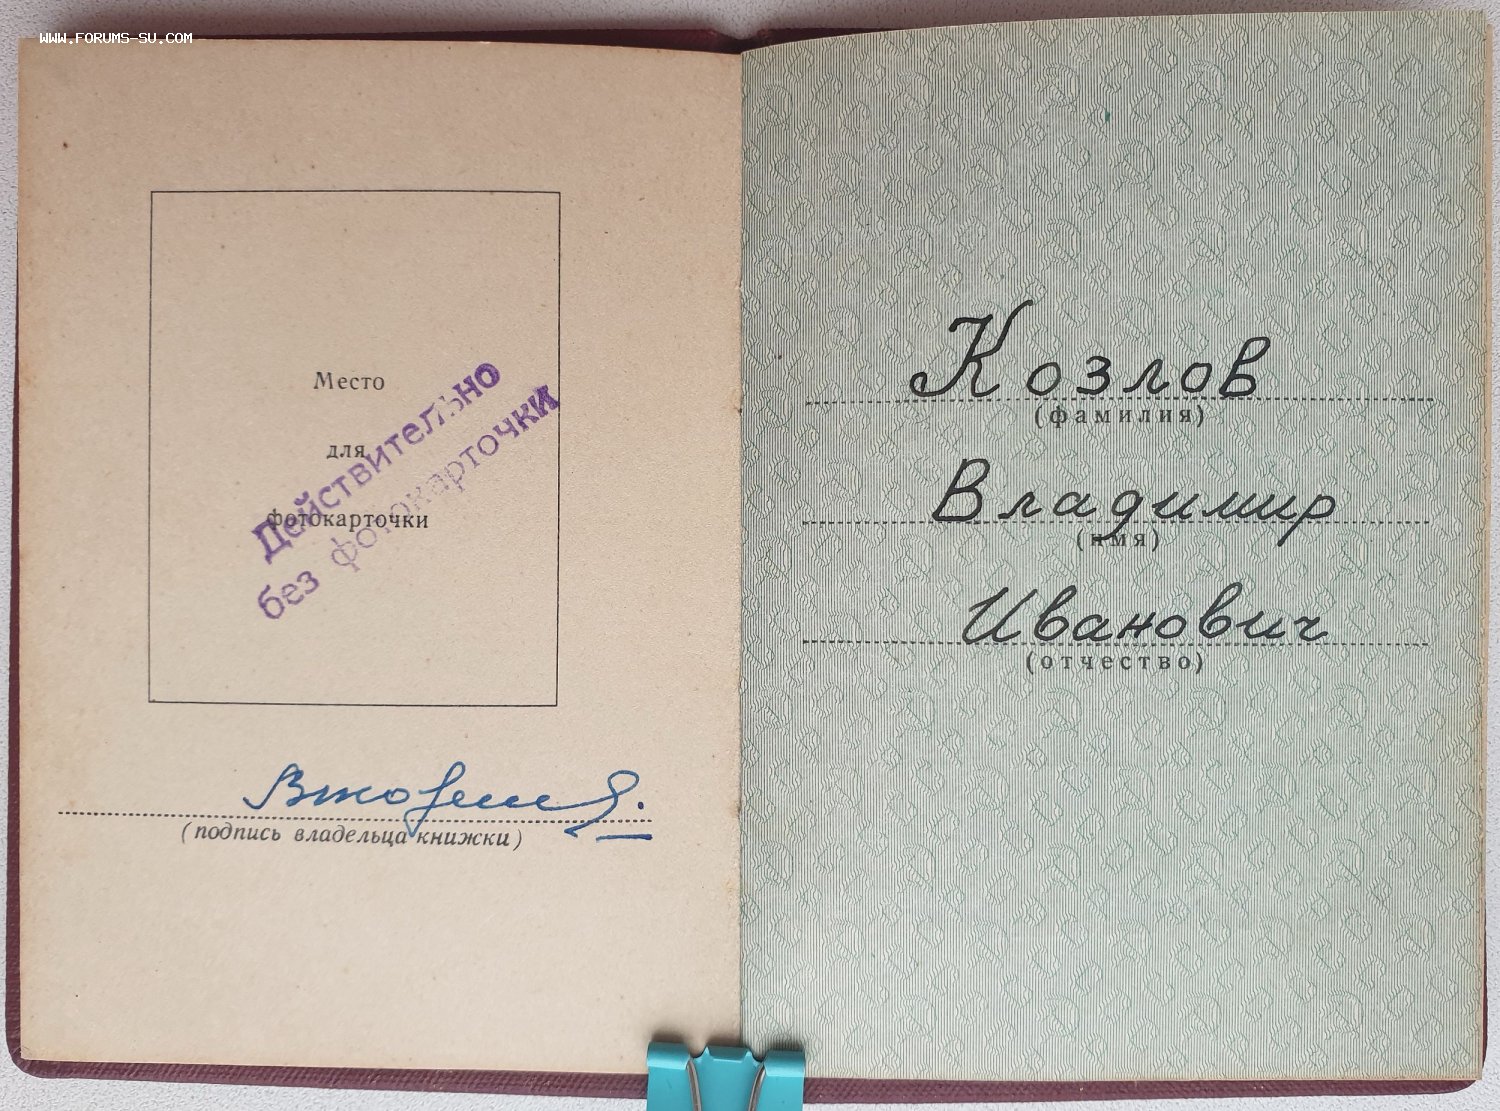 WWW.FORUMS-SU.COM
Место
для
фотокарточки
Действительно
без фотокарточки
(подпись владельца книжки)
Козлов
(фамилия)
Владимир
(имя)
Иванович
(отчество)